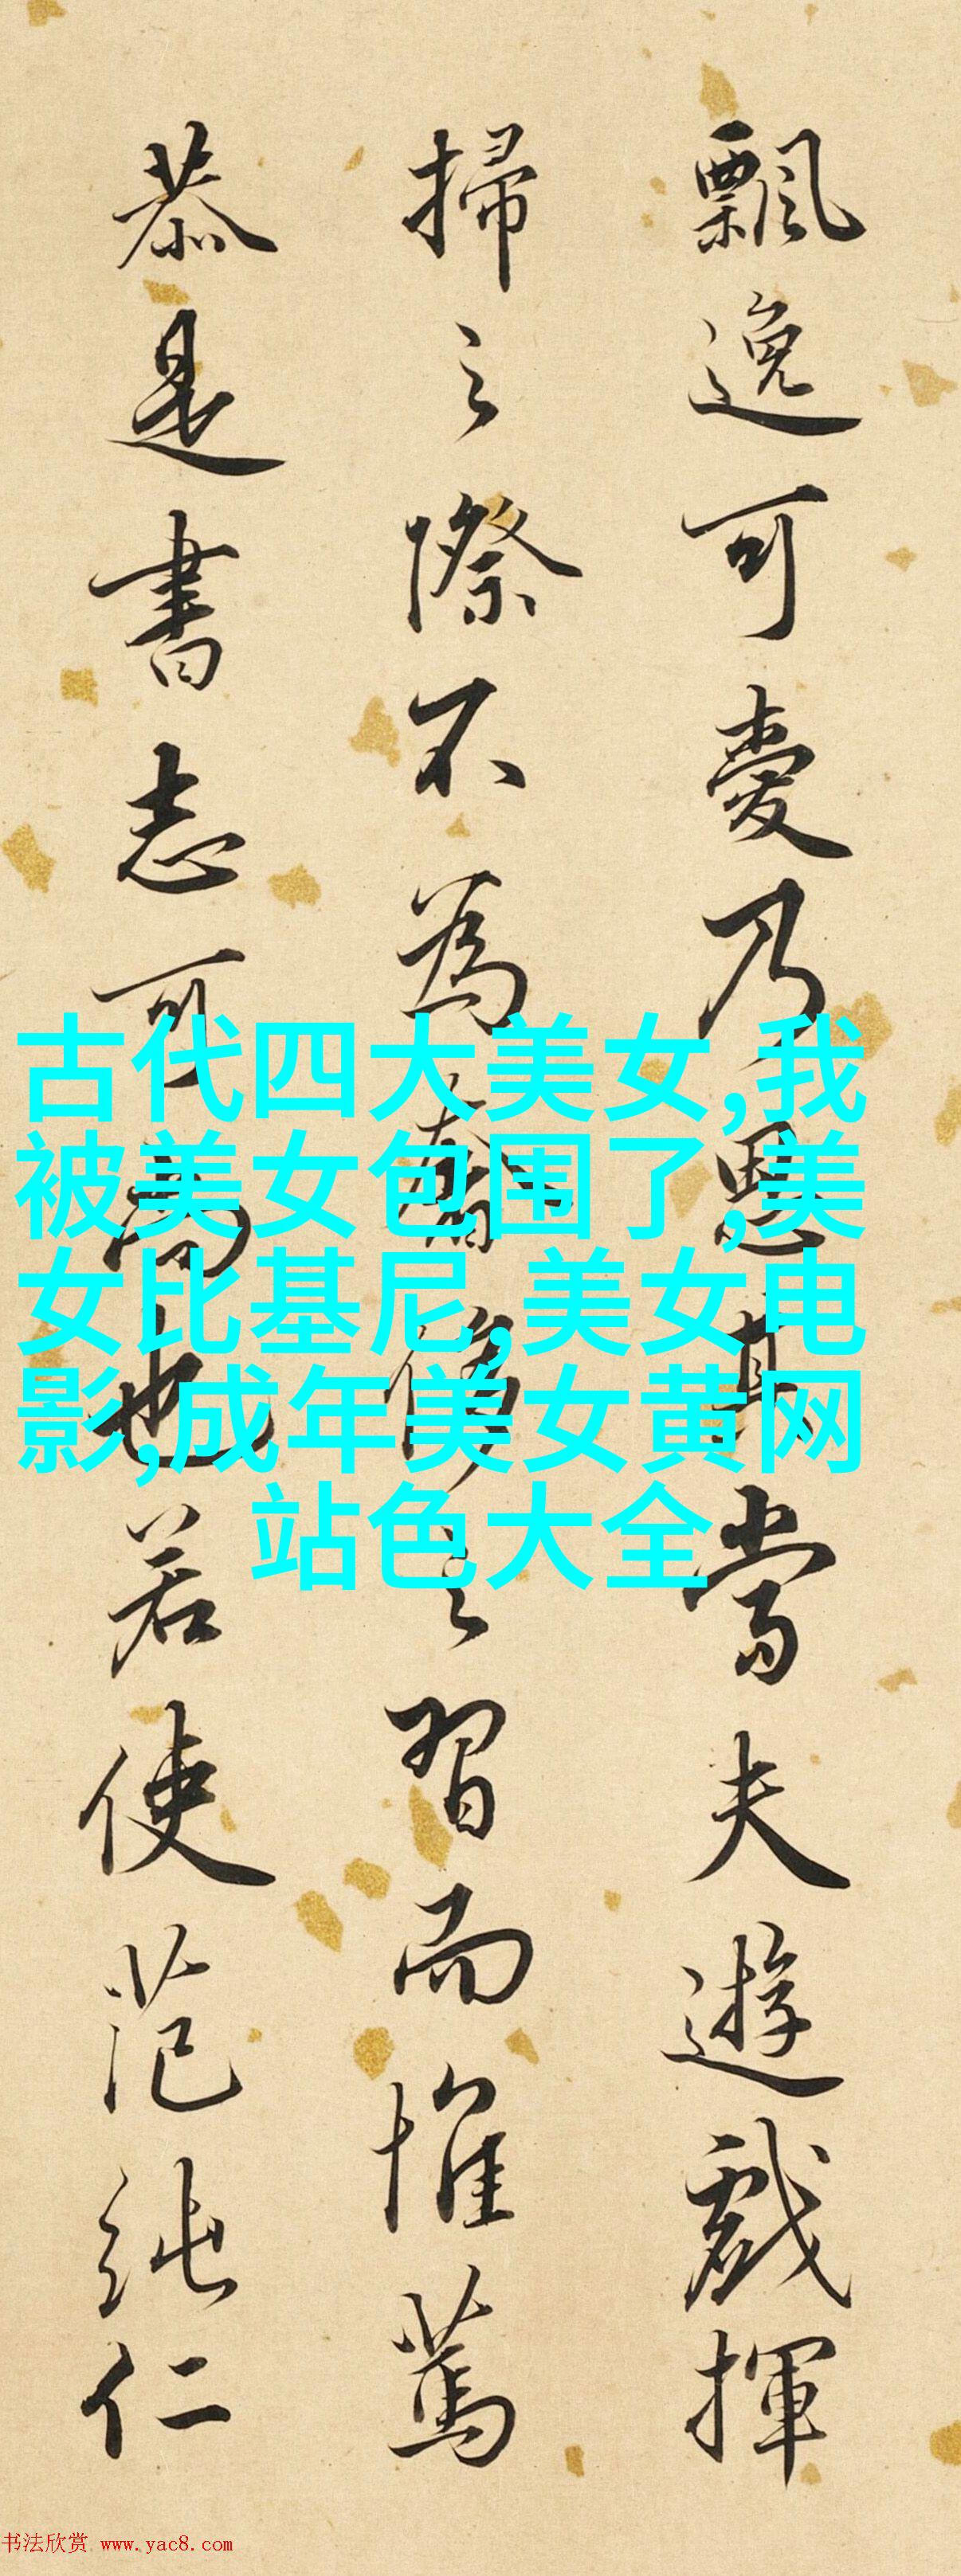 飄逸可愛乃思其當夫遊戲揮
掃之際不為奢侈之習而惟篤
恭是書志可尚也若使范純仁
古代四大美女,我
被美女包围了,美
女比基尼,美女电
影,成年美女黄网
站色大全
书法欣赏 www.yac8.com